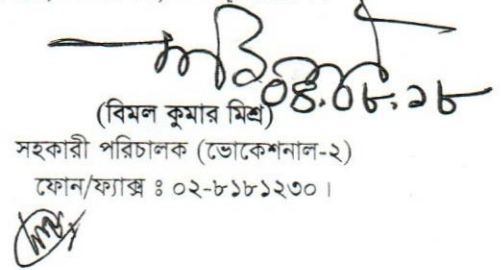 ০৪.০৮.১৮
(বিমল কুমার মিশ্র)
সহকারী পরিচালক (ভোকেশনাল-২)
ফোন/ফ্যাক্স ঃ ০২-৮১৮১২৩০।